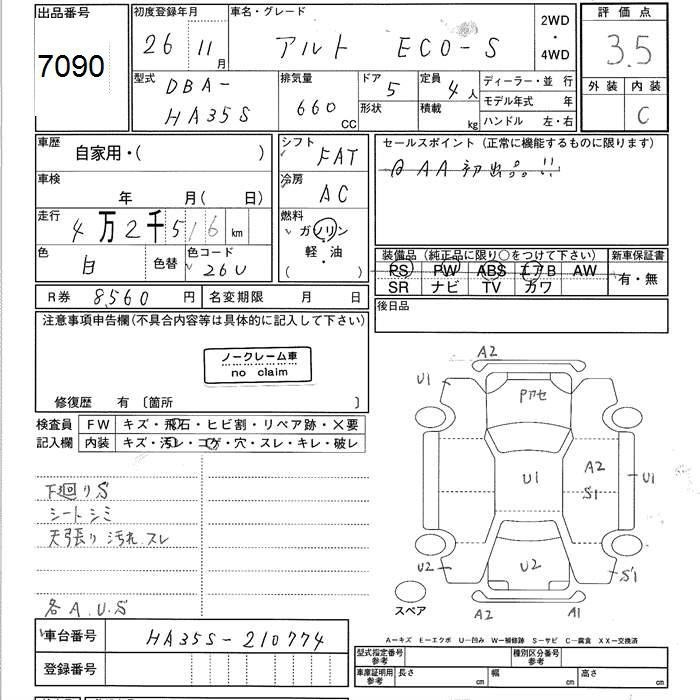 出品番号
7090
初度登録年月
26 11月
車名・グレード
アルト ECO-S
2WD
・
4WD
評価点
3.5
型式
DBA-
HA35S
排気量
660
CC
ドア
5
形状
定員
4人
積載
kg
ディーラー・並 行
モデル年式 年
ハンドル 左・右
外装 内装
C
車歴
自家用・( )
シフト
FAT
セールスポイント (正常に機能するものに限ります)
AA初出品!!
車検
年 月( 日)
冷房
AC
走行
4万2千516km
燃料
ガソリン
軽・油
( )
色
白
色替
色コード
26U
装備品 (純正品に限り○をつけて下さい)
PS PW ABS エアB AW
SR ナビ TV カワ
新車保証書
有・無
R券 8560円
名変期限 月 日
後日品
注意事項申告欄(不具合内容等は具体的に記入して下さい)
ノークレーム車
no claim
修復歴 有 〔箇所 〕
検査員
記入欄
FW キズ・飛石・ヒビ割・リペア跡・×要
内装 キズ・汚レ・コゲ・穴・スレ・キレ・破レ
下廻りS
シートシミ
天張り汚れ スレ
各A.U.S
A2
U1
Pアセ
U1
A2
S1
U1
U2
U2
S1
A2
A1
スペア
A—キズ E—エクボ U—凹み W—補修跡 S—サビ C—腐食 XX—交換済
車台番号
HA35S-210774
登録番号
型式指定番号
参考
種別区分番号
参考
車庫証明用
参考
長さ cm
幅 cm
高さ cm